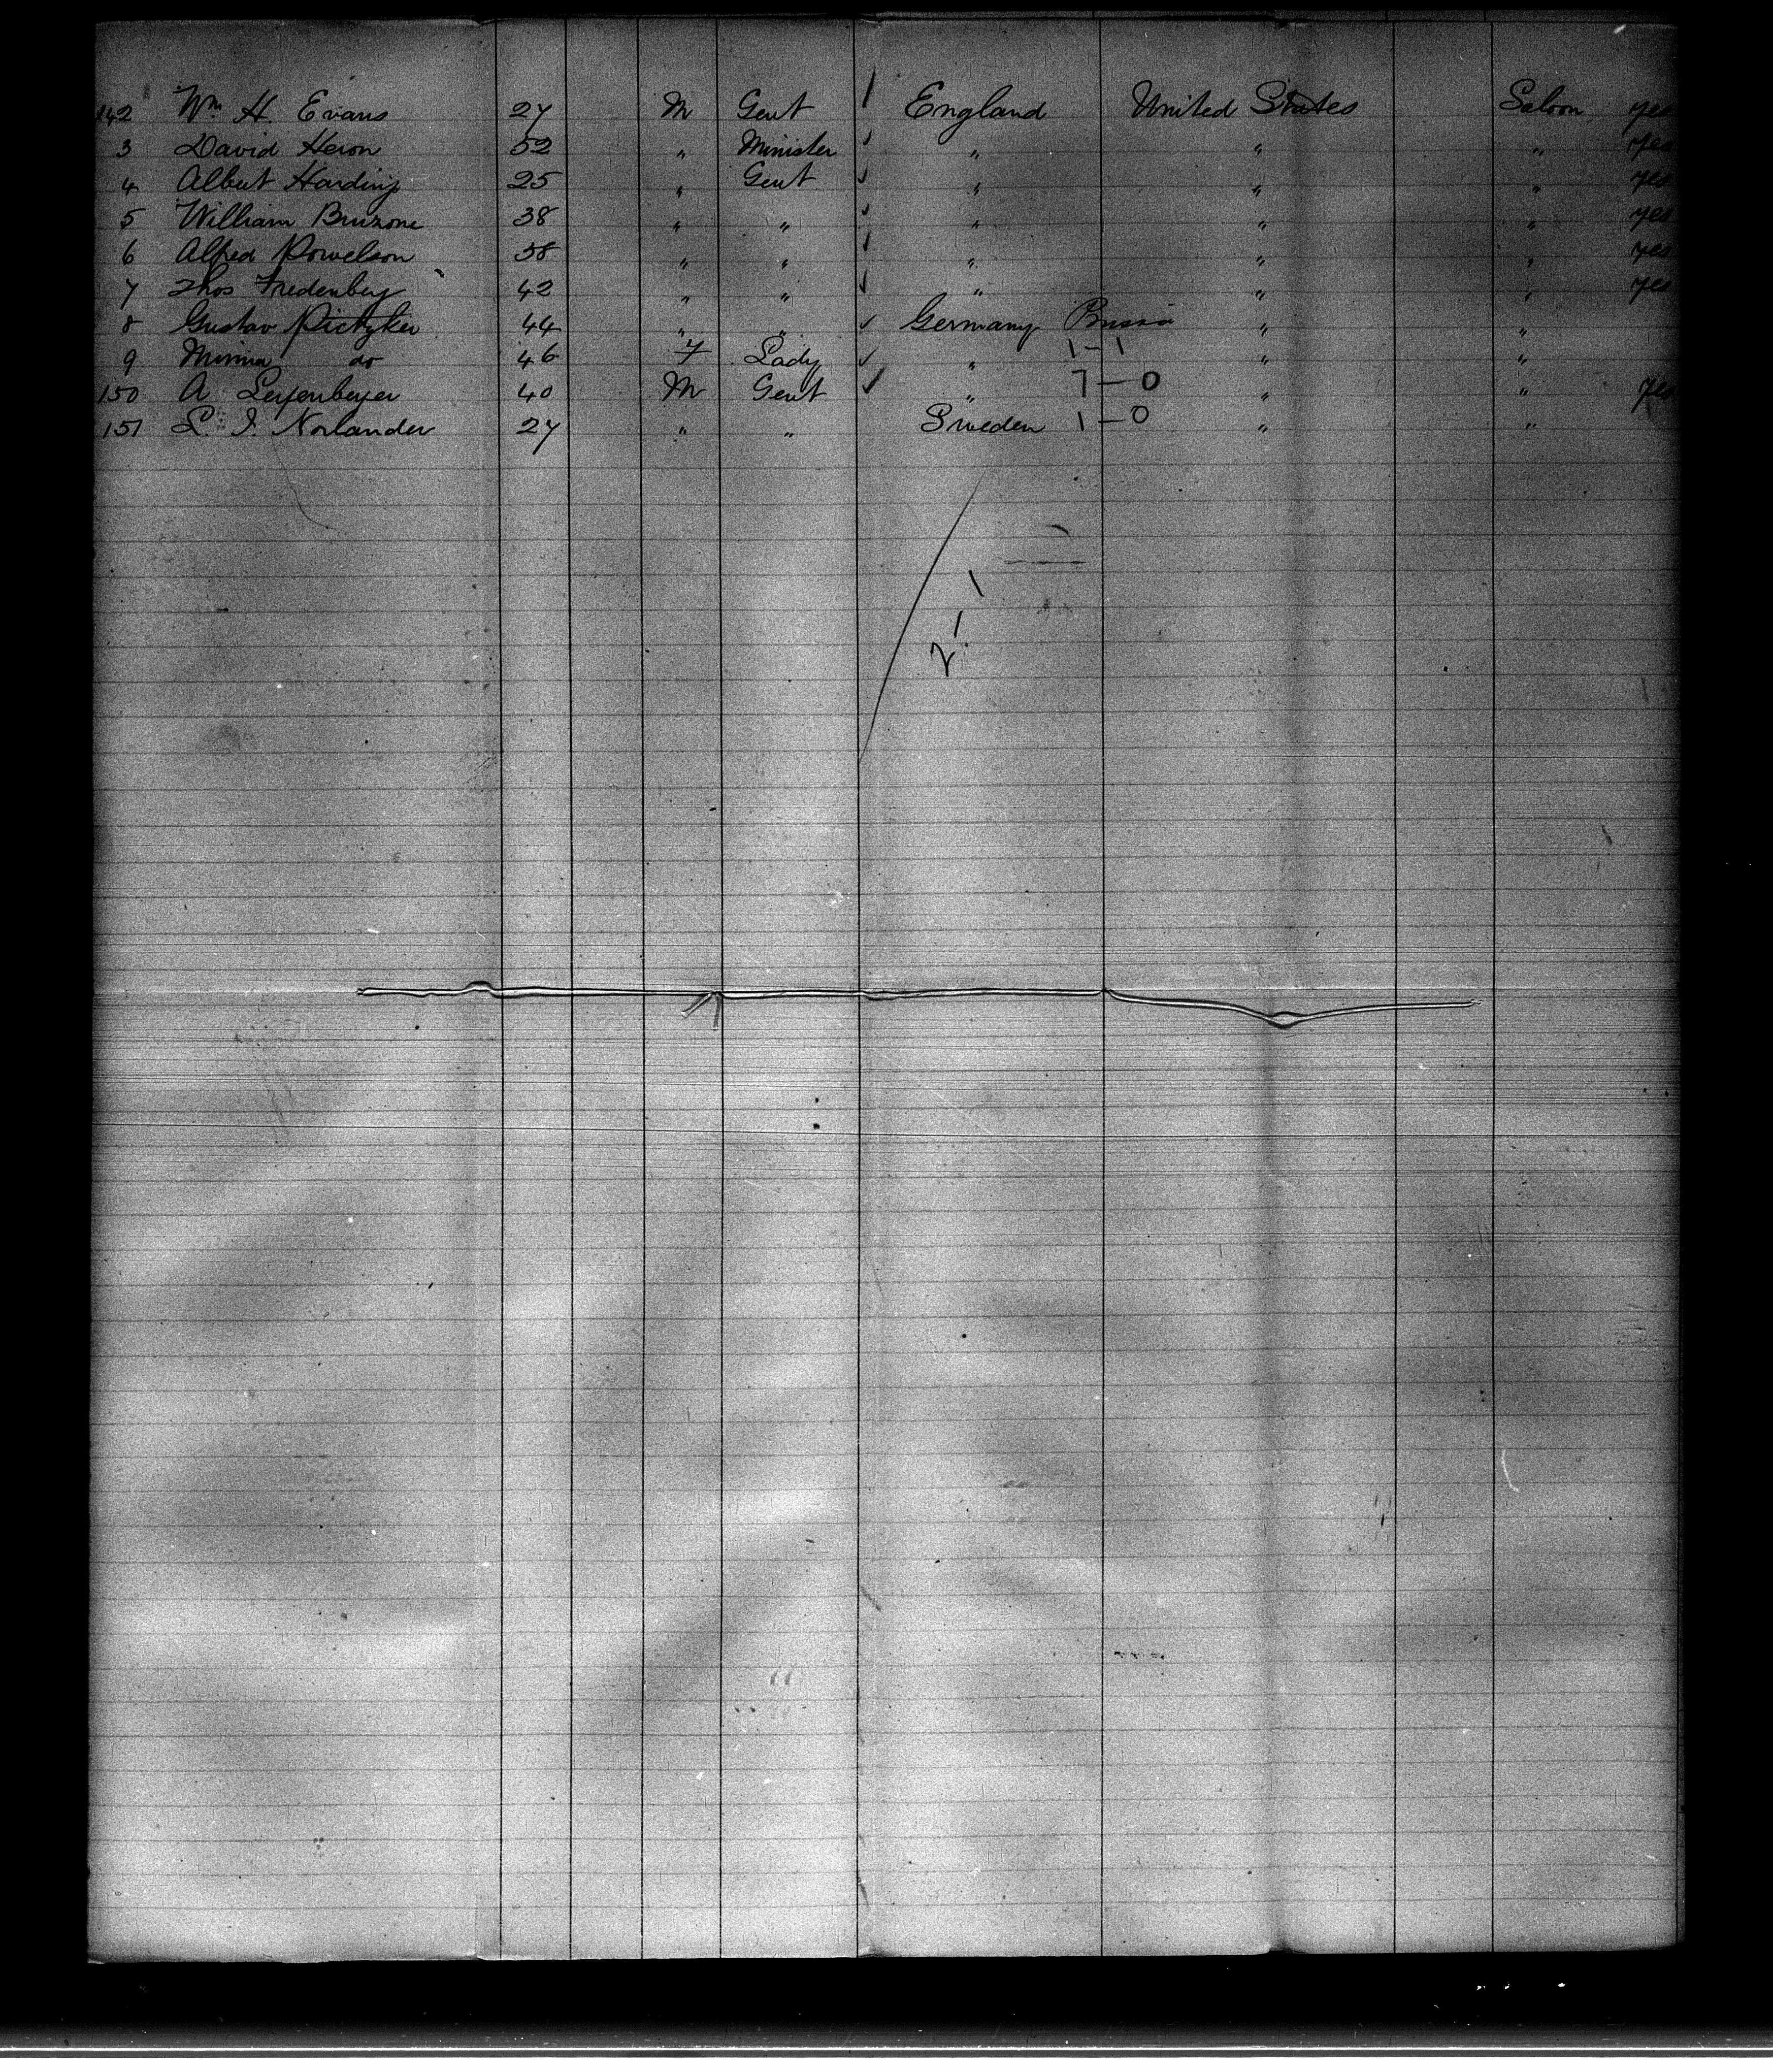 142 Wm. H. Evans 27 M Gent England United States Saloon yes
3 David Heron 52 " Minister " " " yes
4 Albert Harding 25 " Gent " " " yes
5 William 38 " " " " " yes
6 Alfred Powelson 58 " " " " " yes
7 Thos Fredenberg 42 " " " " " yes
8 Gustav 44 " " Germany " "
9 Minna do 46 F Lady " 1-1 " "
150 A 40 M Gent " 7-0 " " yes
151 L. I. Norlander 27 " " Sweden 1-0 " "
2-1